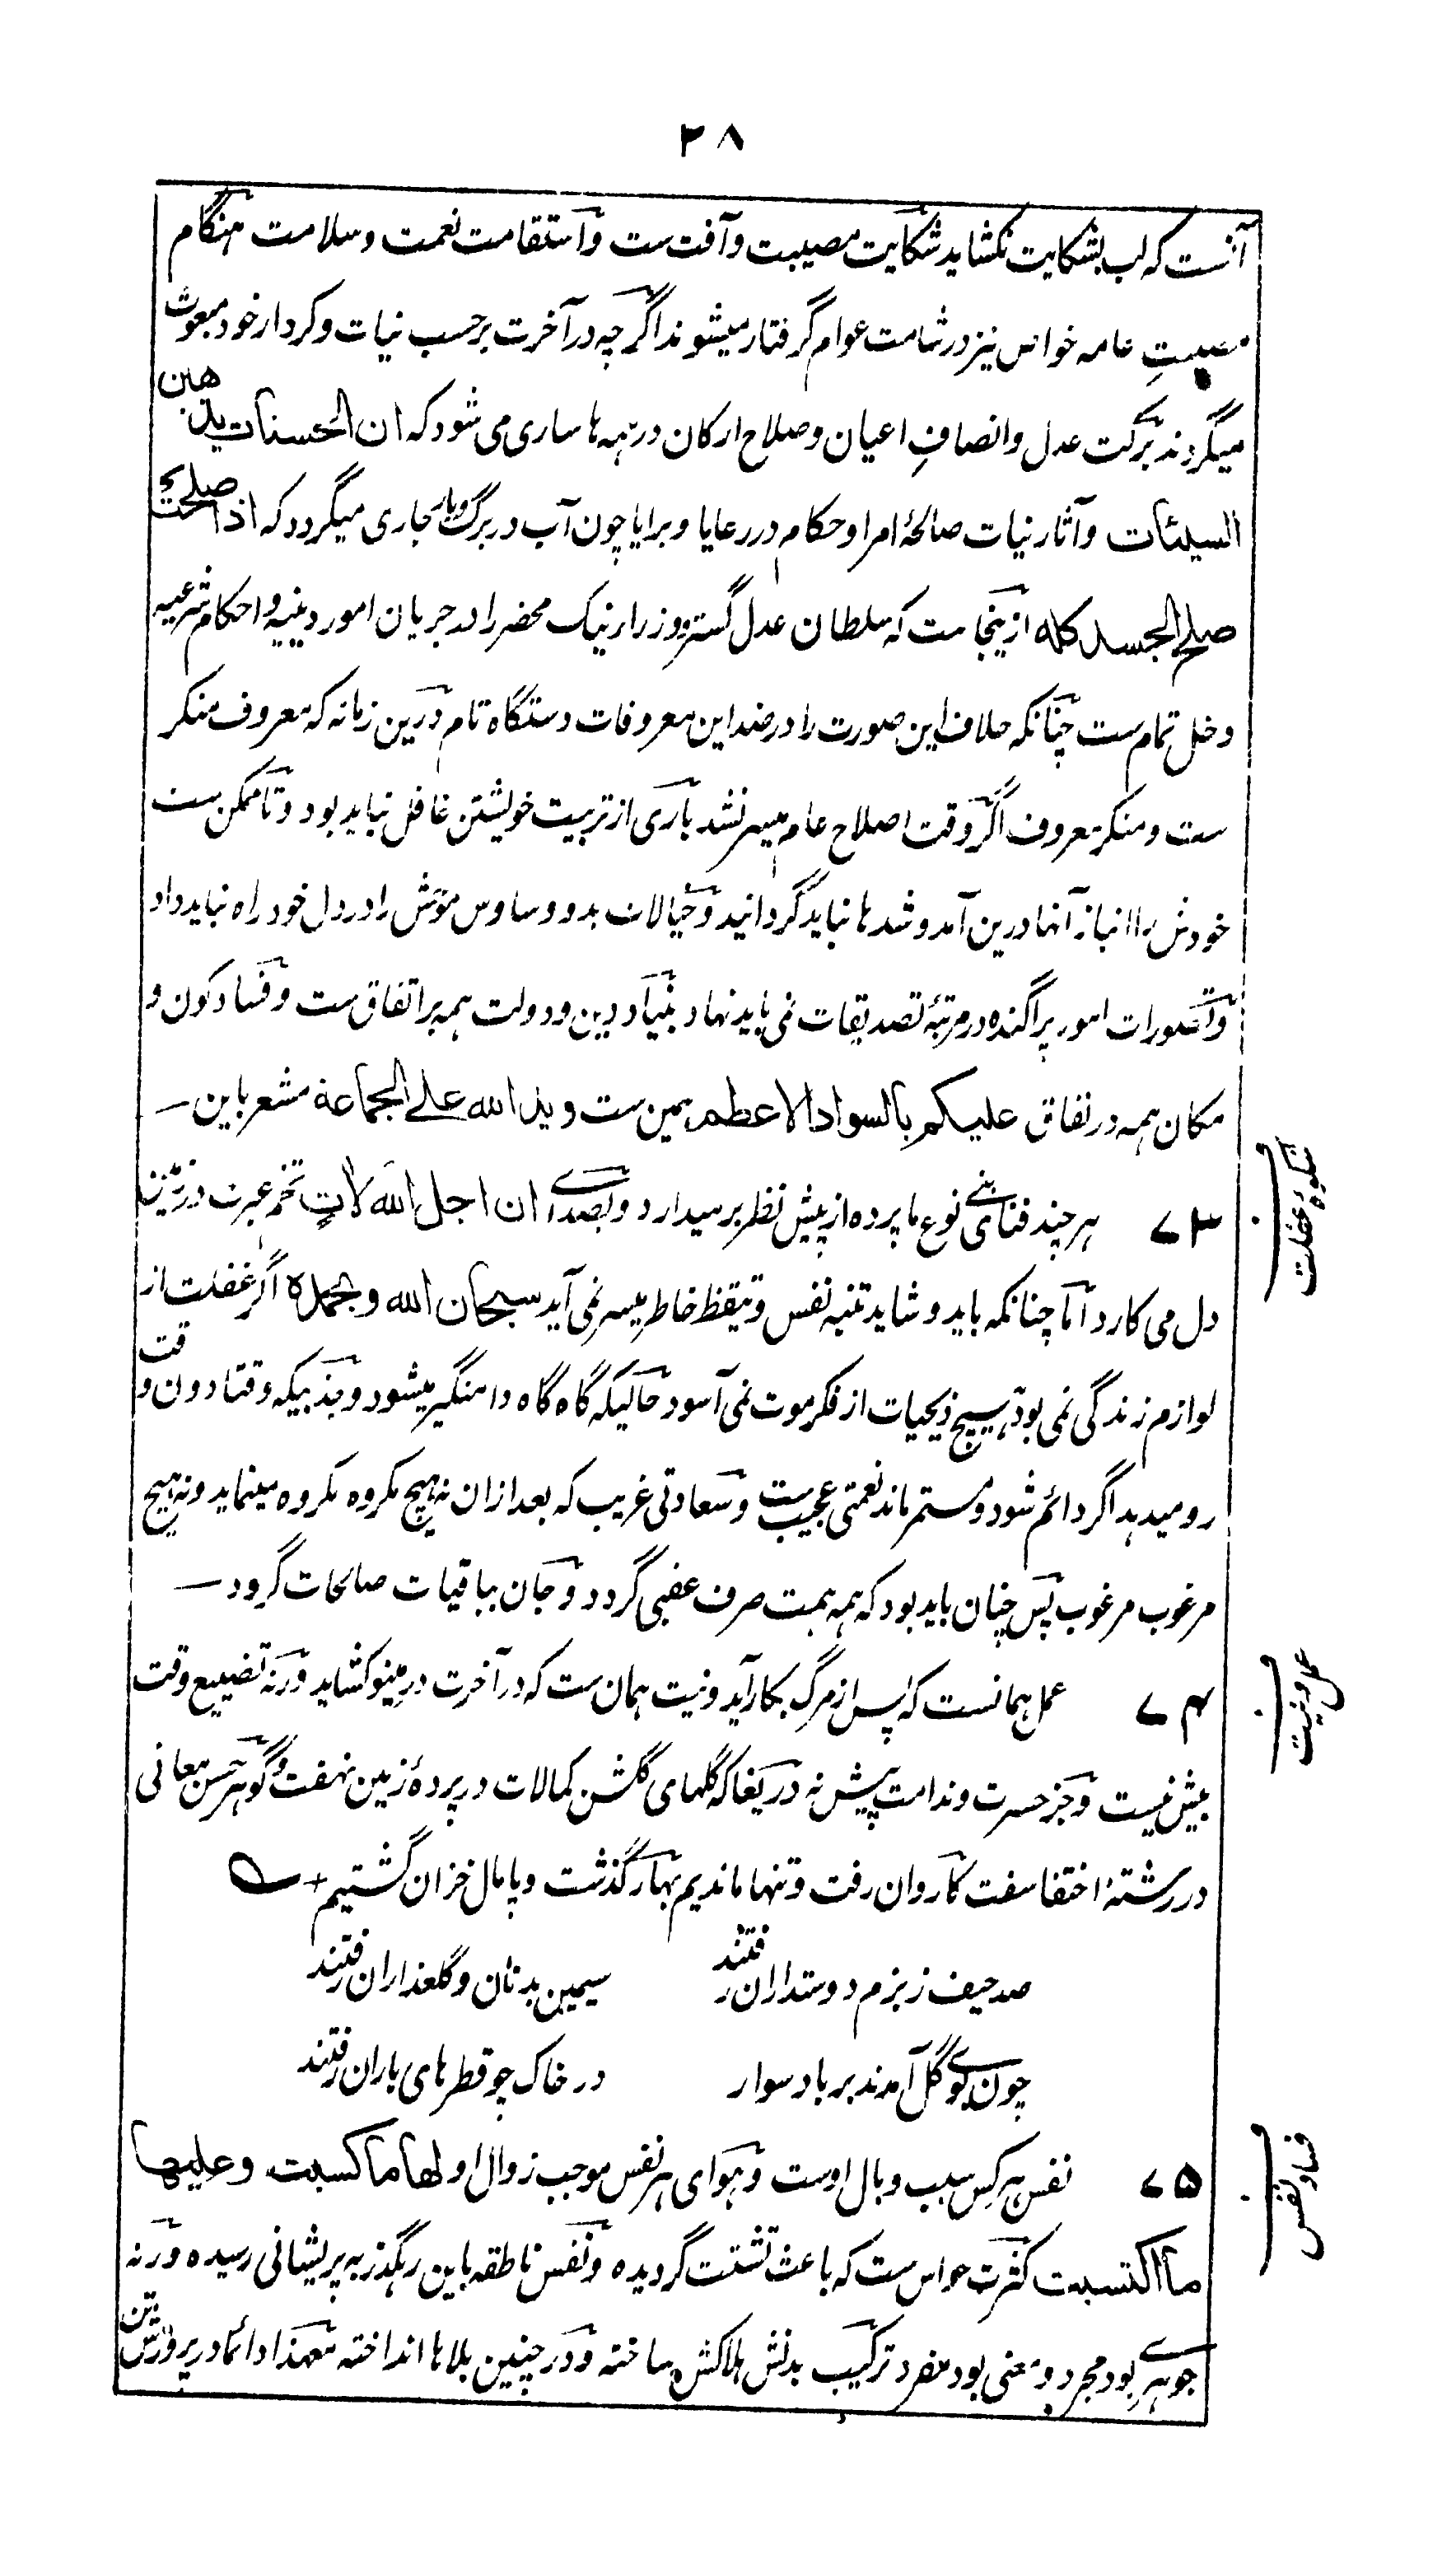 ۲۸
آنست که لب بشکایت نکشاید شکایت مصیبت و آفت ست و استقامت نعمت و سلامت هنگام
مصیبتِ عامه خواص نیز در شامت عوام گرفتار میشوند اگرچه در آخرت برحسب نیات و کردار خود مبعوث
میگردند برکت عدل و انصافِ اعیان و صلاح ارکان در همه ها ساری می شود که ان الحسنات یذهبن
السیئات و آثار نیات صالحهٔ امرا و حکام در رعایا و برایا چون آب در برگ و بار جاری میگردد که اذا صلحت
صلح الجسد کله ازینجاست که سلطان عدل گستر و وزرا نیک محضر را در جریان امور دینیه و احکام شرعیه
دخل تمام ست چنانکه خلاف این صورت را در ضد این معروفات دستگاه تام درین زمانه که معروف منکر
ست و منکر معروف اگر وقت اصلاح عام میسر نشد باری از تربیت خویشتن غافل نباید بود و تا ممکن ست
خودش را انباز آنها درین آمد و شدها نباید گردانید و خیالات بد و وساوس موحش را در دل خود راه نباید داد
و تصورات امور پراگنده در مرتبهٔ تصدیقات نمی باید نهاد بنیاد دین و دولت همه بر اتفاق ست و فساد کون و
مکان همه در نفاق علیکم بالسواد الاعظم همین ست و ید الله علی الجماعة مشعر باین —
شکوهٔ غفلت
۷۳ هر چند فنای بنی نوع ما پرده از پیش نظر برمیدارد و بصدای ان اجل الله لاٰتٍ تخم عبرت در زمین
دل می کارد اما چنانکه باید و شاید تنبه نفس و تیقظ خاطر میسر نمی آید سبحان الله و بحمده اگر غفلت از
لوازم زندگی نمی بود هیچ ذیحیات از فکر موت نمی آسود حالیکه گاه گاه دامنگیر میشود و جذبیکه وقتا دون وقت
رو میدهد اگر دائم شود و مستمر ماند نعمتی عجیب ست و سعادتی غریب که بعد ازان نه هیچ مکروه مکروه مینماید و نه هیچ
مرغوب مرغوب پس چنان باید بود که همه همت صرف عقبی گردد و جان بباقیات صالحات گرود —
عمل و نیت
۷۴ عمل همانست که پس از مرگ بکار آید و نیت همان ست که در آخرت در مینو کشاید ورنه تضییع وقت
بیش نیست و جز حسرت و ندامت پیش نه دریغا که گلهای گلشن کمالات در پردهٔ زمین نهفت و گوهر حسن معانی
در رشتهٔ اختفا سفت کاروان رفت و تنها ماندیم بهار گذشت و پامال خزان گشتیم +
صد حیف ز بزم دوستداران رفتند سیمین بدنان و گلعذاران رفتند
چون بوی گل آمدند بر باد سوار در خاک چو قطرهای باران رفتند
فساد نفس
۷۵ نفس هر کس سبب وبال اوست و هوای هر نفس موجب زوال او لها ما کسبت و علیها
ما اکتسبت کثرت حواس ست که باعث تشتت گردیده و نفس ناطقه باین رهگذر به پریشانی رسیده ورنه
جوهرے بود مجرد و معنی بود مفرد ترکیب بدنش هلاکش ساخته و در چنین بلاها انداخته معهذا دائما در پرورش تن